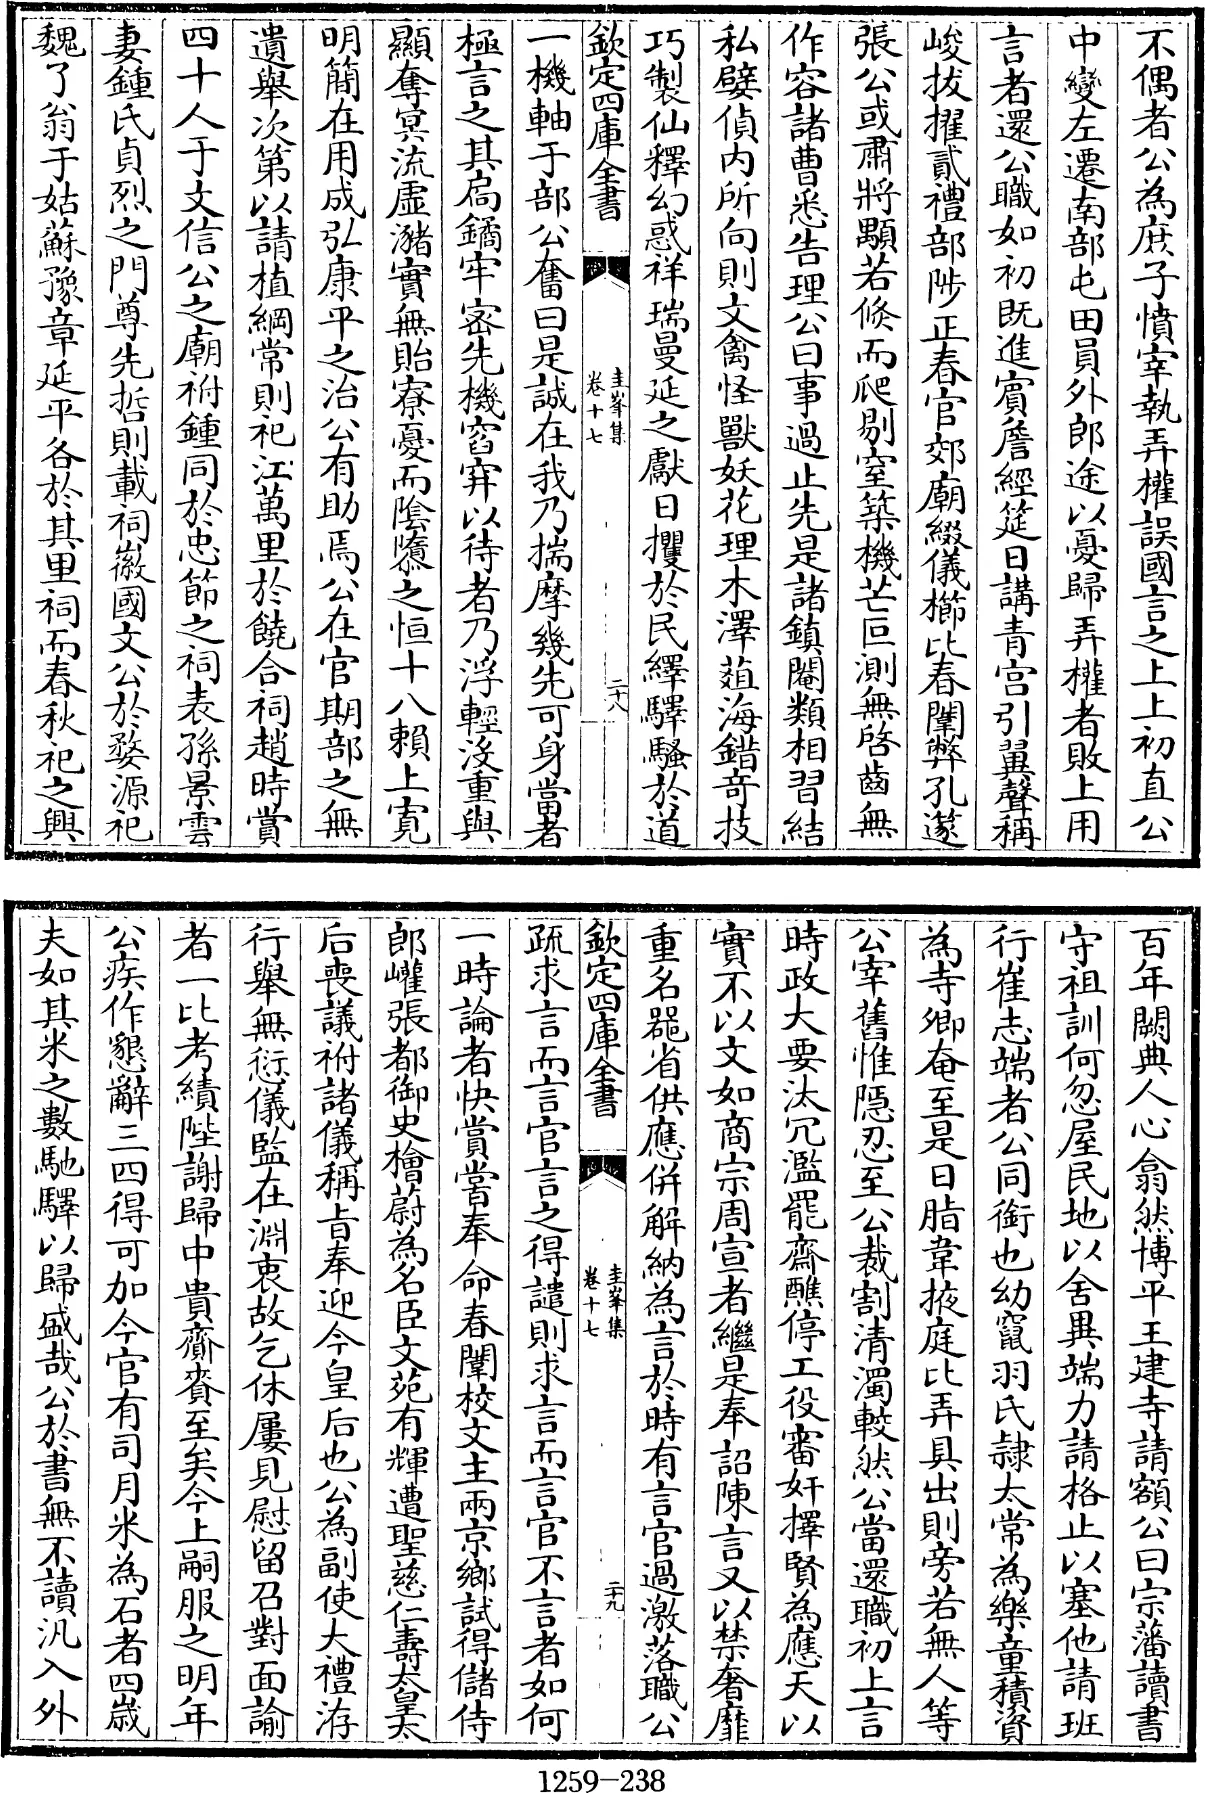 不偶者公為庶子憤宰執弄權誤國言之上上初直公
中變左遷南部屯田員外郎途以憂歸弄權者敗上用
言者還公職如初既進賓詹經筵日講青宫引翼聲稱
峻拔擢貳禮部陟正春官郊廟綴儀櫛比春闈弊孔遂
張公或肅將顒若倏而爬剔窒築機芒叵測無啓齒無
作容諸曹悉告理公曰事過止先是諸鎮閹類相習結
私嬖偵内所向則文禽怪獸妖花理木澤葅海錯竒技
巧製仙釋幻惑祥瑞曼延之獻日攫於民繹驛騷於道
欽定四庫全書
圭峯集
卷十七
二十八
一機軸于部公奮曰是誠在我乃揣摩幾先可身當者
極言之其扃鐍牢密先機窞穽以待者乃浮輕沒重與
顯奪冥流虛瀦實無貽寮憂而陰隳之恒十八賴上寛
明簡在用成弘康平之治公有助焉公在官期部之無
遺舉次第以請植綱常則祀江萬里於饒合祠趙時賞
四十人于文信公之廟祔鍾同於忠節之祠表孫景雲
妻鍾氏貞烈之門尊先哲則載祠徽國文公於婺源祀
魏了翁于姑蘇豫章延平各於其里祠而春秋祀之興
百年闕典人心翕然博平王建寺請額公曰宗藩讀書
守祖訓何忽屋民地以舍異端力請格止以塞他請班
行崔志端者公同銜也幼竄羽氏隷太常為樂童積資
為寺卿奄至是日脂韋掖庭比弄具出則旁若無人等
公宰舊惟隠忍至公裁割清濁較然公當還職初上言
時政大要汰冗濫罷齋醮停工役審奸擇賢為應天以
實不以文如商宗周宣者繼是奉詔陳言又以禁奢靡
重名器省供應併解納為言於時有言官過激落職公
欽定四庫全書
圭峯集
卷十七
二十九
疏求言而言官言之得譴則求言而言官不言者如何
一時論者快賞嘗奉命春闈校文主兩京鄉試得儲侍
郎巏張都御史檜蔚為名臣文苑有輝遭聖慈仁壽太皇太
后喪議祔諸儀稱旨奉迎今皇后也公為副使大禮洊
行舉無愆儀監在淵衷故乞休屢見慰留召對面諭
者一比考績陛謝歸中貴齎賚至矣今上嗣服之明年
公疾作懇辭三四得可加今官有司月米為石者四歳
夫如其米之數馳驛以歸盛哉公於書無不讀汎入外
1259-238